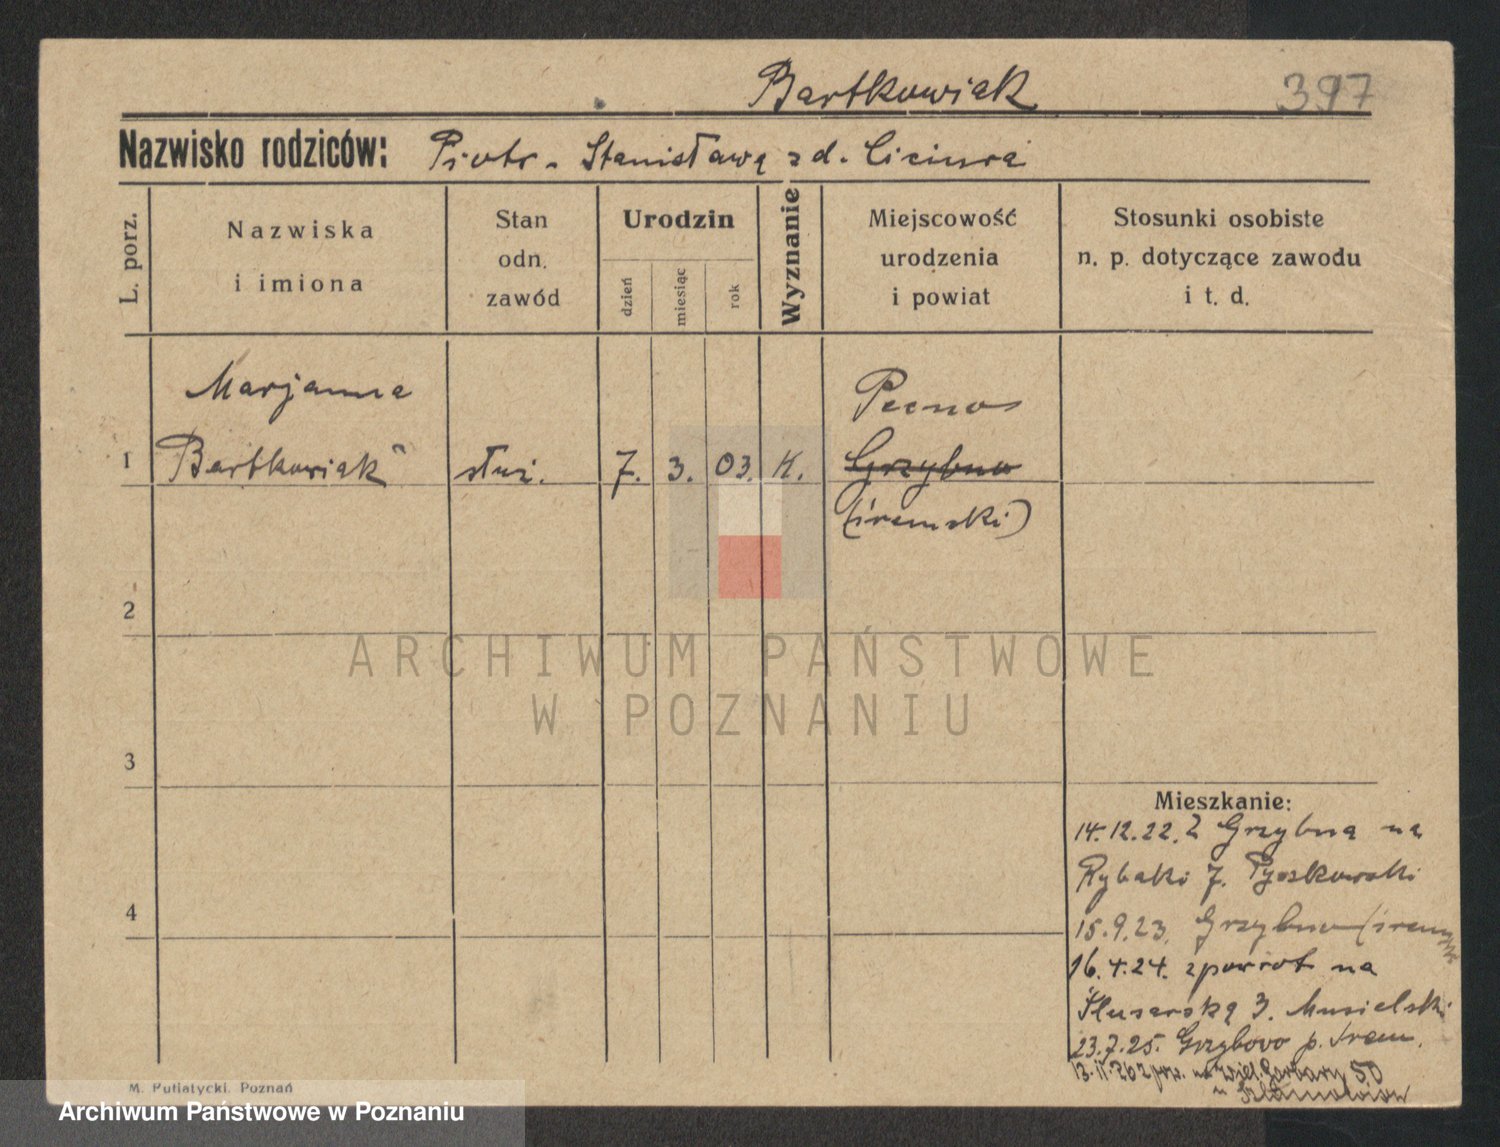 Bartkowiak
397
Nazwisko rodziców: Piotr - Stanisława zd.
L. porz.
Nazwiska
i imiona
Stan
odn.
zawód
Urodzin
dzień
miesiąc
rok
Wyznanie
Miejscowość
urodzenia
i powiat
Stosunki osobiste
n. p. dotyczące zawodu
i t. d.
Marjanna
1
Bartkowiak
służ.
7.
3.
03.
K.
Pecna
Grzybno
(śremski)
2
3
4
ARCHIWUM PAŃSTWOWE
W POZNANIU
Mieszkanie:
14.12.22. Z Grzybna na
Rybaki 7. Pyszkowski
15.9.23. Grzybno (śrem
16.4.24. zpowrot na
Ślusarską 3. Musielski
23.7.25. Grzybowo p. Śrem.
13.11.26 na Wiel. Garbary 50
M. Putiatycki. Poznań
Archiwum Państwowe w Poznaniu